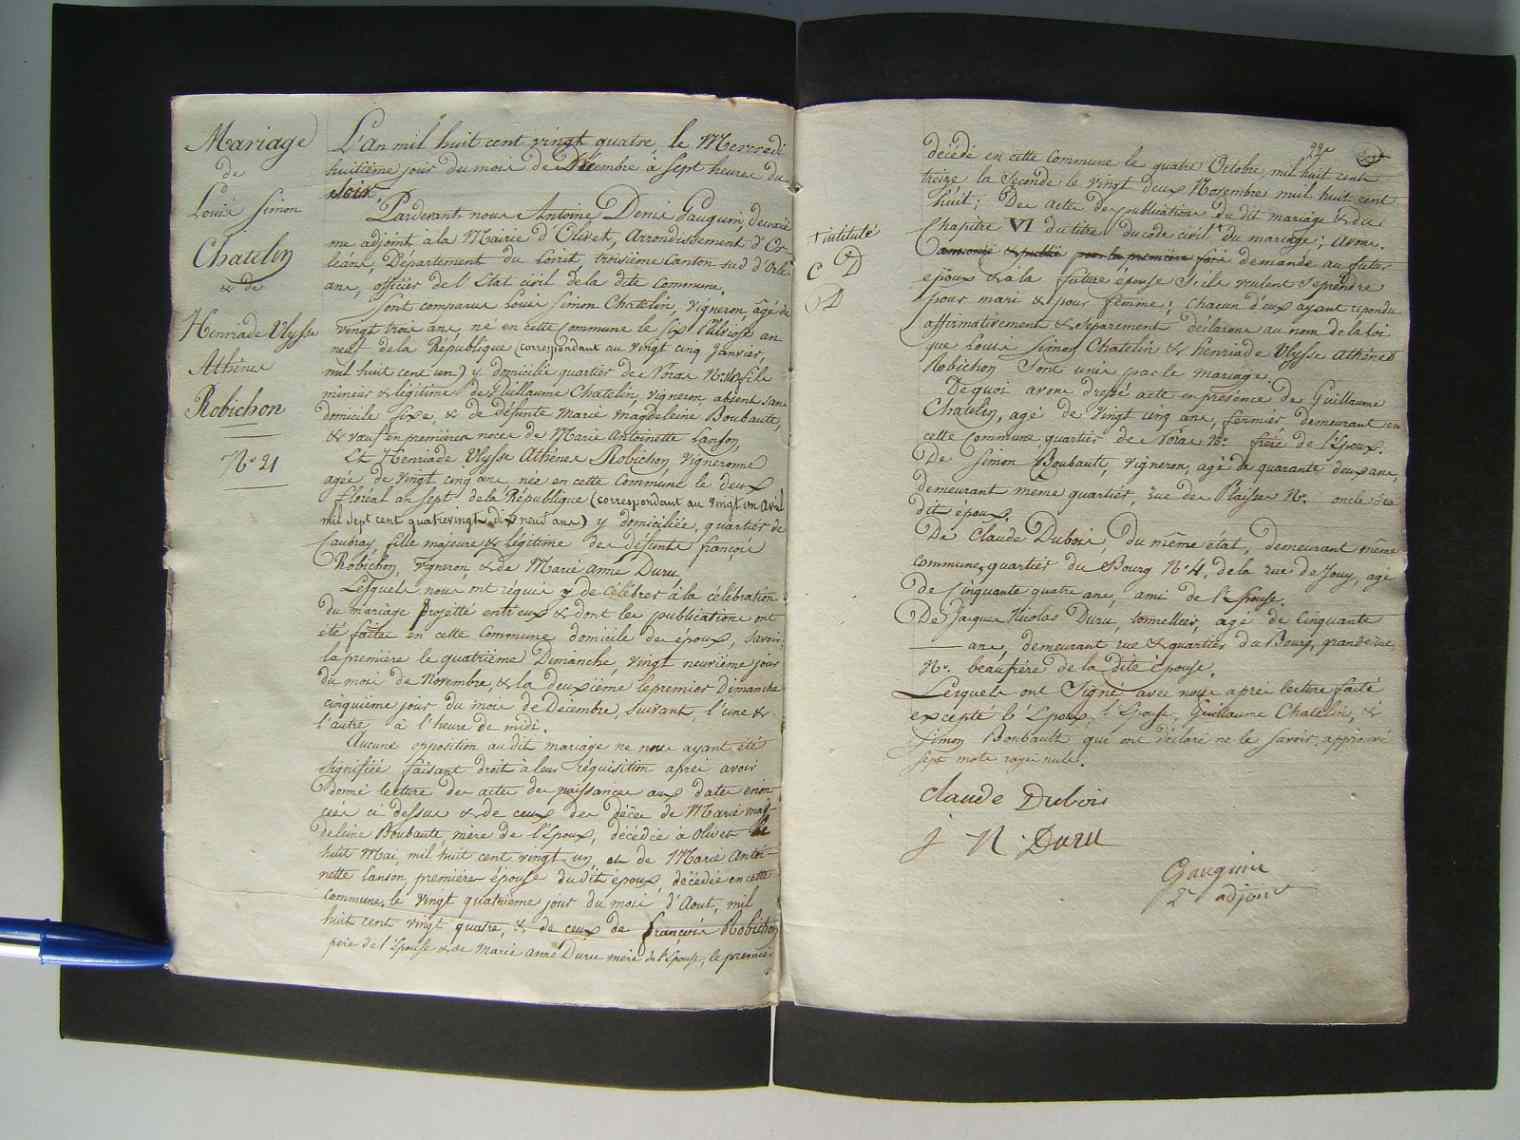 Mariage
de
Louis Simon
Chatelin
& de
Henriade Ulysse
Athénes
Robichon
N.° 21
L'an mil huit cent vingt quatre, le Mercredi
huitième jour du mois de Décembre à sept heures du
soir.
Pardevant nous Antoine Denis Gauguin, deuxiè
me adjoint à la Mairie d'Olivet, Arrondissement d'Or-
léans, Département du Loiret, troisième Canton sud d'Orlé-
ans, officier de l'Etat civil de la dite Commune.
Sont comparus Louis Simon Chatelin, vigneron, âgé de
vingt trois ans, né en cette Commune le six Pluviose an
neuf de la République (correspondant au vingt cinq Janvier,
mil huit cent un) y domicilié quartier de Noras N.° fils
mineur & légitime de Guillaume Chatelin, vigneron, absent sans
domicile fixe, & de défunte Marie Magdeleine Boubault,
& veuf en premières noces de Marie Antoinette Lanson,
Et Henriade Ulysse Athénes Robichon, vigneronne
agée de vingt cinq ans, née en cette Commune le deux
floréal an sept de la République (correspondant au vingt un avril
mil sept cent quatrevingt dix neuf ans) y domiciliée, quartier de
Caubray fille majeure & légitime de défunts françois
Robichon, vigneron, & de Marie anne Duru.
Lesquels nous ont requis y de célébrer à la célébration
du mariage projetté entr'eux & dont les publications ont
été faites en cette Commune domicile des époux, savoir,
la première le quatrième Dimanche, vingt neuvième jour
du mois de Novembre, & la deuxième le premier Dimanche
cinquième jour du mois de Décembre, suivant, l'une &
l'autre à l'heure de midi.
Aucune opposition audit mariage ne nous ayant été
signifiée faisant droit à leur réquisition après avoir
donné lecture des actes de naissances aux dates énon-
cées ci dessus & de ceux des décès de Marie mag-
deleine Boubault, mère de l'époux, décédée à Olivet le
huit Mai, mil huit cent vingt un et de Marie Antoi-
nette Lanson première épouse dudit époux, décédée en cette
Commune, le vingt quatrième jour du mois d'Aout, mil
huit cent vingt quatre, & de ceux de françois Robichon
père de l'épouse & de Marie anne Duru mère de l'épouse, le premier
décédé en cette Commune le quatre Octobre, mil huit cent
treize, la seconde le vingt deux Novembre mil huit cent
huit; Des actes de publications du dit mariage & du
+ intitulé
Chapitre VI du titre du code civil + du mariage; avons
C D
demandé au futur
D
époux & à la future épouse s'ils veulent se prendre
pour mari & pour femme; chacun d'eux ayant répondu
affirmativement & séparément déclarons au nom de la loi
que Louis Simon Chatelin & henriade Ulysse Athénes
Robichon sont unis par le mariage.
De quoi avons dressé acte en présence de Guillaume
Chatelin, agé de vingt cinq ans, fermier demeurant en
cette Commune quartier de Noras N.° frère de l'époux.
De Simon Boubault, vigneron, agé de quarante deux ans,
demeurant même quartier, rue des Plaisses N.° oncle du
dit époux.
De Claude Dubois, du même état, demeurant même
commune, quartier du Bourg N.° 4, de la rue de Jouy, agé
de Cinquante quatre ans, ami de l'épouse.
De Jacques Nicolas Duru, tonnellier, agé de Cinquante
ans, demeurant rue & quartier du Bourg, grande rue
N.° beaufrère de la dite épouse.
Lesquels ont signé avec nous après lecture faite
excepté l'époux, l'épouse, Guillaume Chatelin, &
Simon Boubault qui ont déclaré ne le savoir. approuvé
sept mots rayés nuls.
Claude Dubois
J N. Duru
Gauguin
2e adjoint